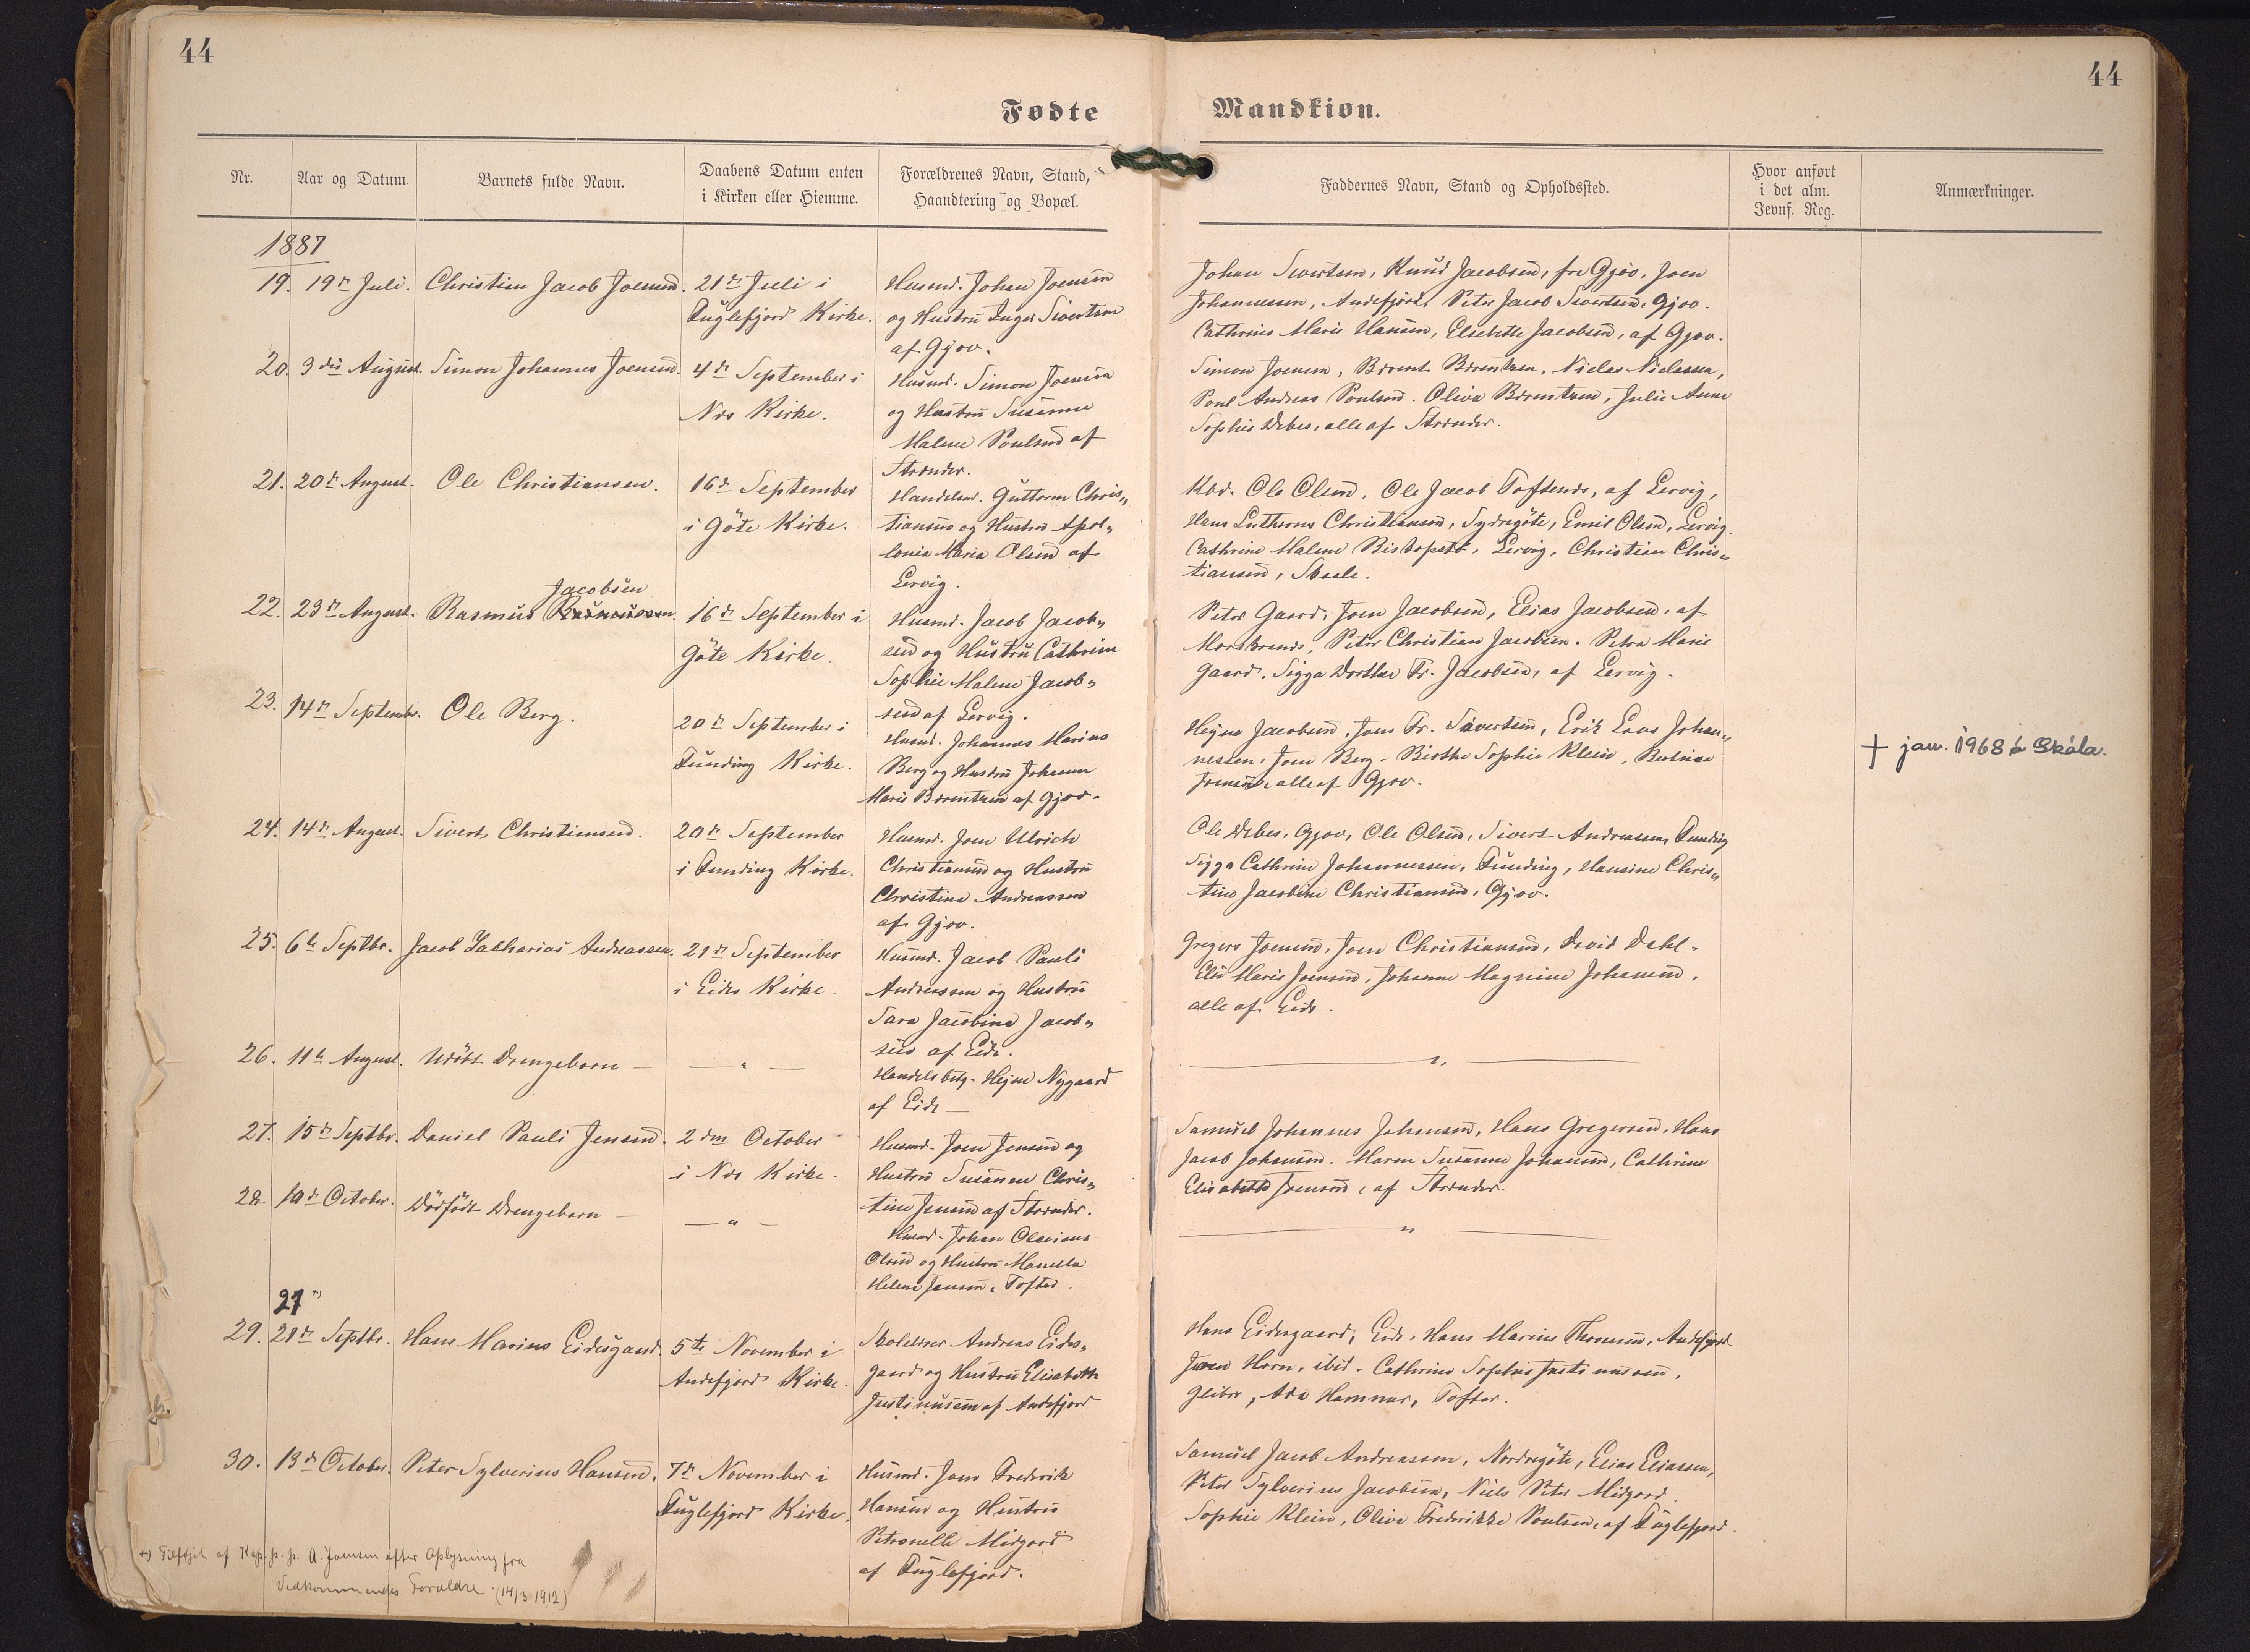 44
44
Fødte
Mandkiøn.
Nr.
Aar og Datum.
Barnets fulde Navn.
Daabens Datum enten
i Kirken eller Hiemme.
Forældrenes Navn, Stand,
Haandtering og Bopæl.
Faddernes Navn, Stand og Opholdssted.
Hvor anført
i det alm.
Jevnf. Reg.
Anmærkninger.
1887
19.
19de Juli.
Christian Jacob Joensen.
21de Juli i
Fuglefjord Kirke.
Husmd. Johan Joensen
og Hustru Inger Sivertsen
af Gjov.
Johan Sivertsen, Knud Jacobsen, fra Gjov. Joen
Johannesen, Andefjord, Peter Jacob Sivertsen, Gjov.
Cathrine Marie Hansen, Elsebeth Jacobsen, af Gjov.
20.
3die August.
Simon Johannes Joensen.
4de September i
Næs Kirke.
Husmd. Simon Joensen
og Hustru Susanne
Malene Poulsen af
Strænder.
Simon Joensen, Berent Berentsen, Niclas Niclassen,
Poul Andreas Poulsen. Oliva Berentsen, Julie Anne
Sophie Debes, alle af Strænder.
21.
20de August.
Ole Christiansen.
16de September
i Göte Kirke.
Handelsmd. Guttorm Chris„
tiansen og Hustru Apol„
lonia Maria Olsen af
Lervig.
Kbd. Ole Olsen, Ole Jacob Toftende, af Lervig,
Hans Lutherus Christiansen, Sydregöte, Emil Olsen, Lervig.
Cathrine Malene Biskopstö, Lervig, Christian Chris„
tiansen, Skaale.
22.
23de August.
Rasmus Rasmussen.
Jacobsen
16de September i
Göte Kirke.
Husmd. Jacob Jacob„
sen og Hustru Cathrine
Sophie Malene Jacob„
sen af Lervig.
Peter Gaard, Joen Jacobsen, Elias Jacobsen, af
Morskranes, Peter Christian Jacobsen. Petra Marie
Gaard, Sigga Dorthea Fr. Jacobsen, af Lervig.
23.
14de September.
Ole Berg.
20de September i
Funding Kirke.
Husmd. Johannes Marius
Berg og Hustru Johanne
Marie Berentsen af Gjov.
Hejne Jacobsen, Joen Fr. Sivertsen, Erik Laos Johan„
nesen, Joen Berg. Birthe Sophie Klein,
Joensen, alle af Gjov.
† jan. 1968 á Skála.
24.
14de August.
Sivert Christiansen.
20de September
i Funding Kirke.
Husmd. Joen Ulrich
Christiansen og Hustru
Christine Andreassen
af Gjov.
Ole Debes, Gjov, Ole Olsen, Sivert Andreassen, Funding
Sigga Cathrine Johannessen, Funding, Hansine Chris„
tine Jacobine Christiansen, Gjov.
25.
6te Septbr.
Jacob Zacharias Andreassen.
21de September
i Eide Kirke.
Husmd. Jacob Pauli
Andreassen og Hustru
Sara Jacobina Jacob„
sen af Eide.
Gregers Joensen, Joen Christiansen, David Dahl.
Else Marie Joensen, Johanne Magnine Johansen,
alle af Eide.
26.
11te August.
Udöbt Drengebarn —
— „ —
Handelsbstg. Hejne Nygaard
af Eide —
— „ —
27.
15de Septbr.
Daniel Pauli Jensen.
2den October
i Næs Kirke.
Husmd. Joen Jensen og
Hustru Susanne Chris„
tine Jensen af Strænder.
Samuel Johannes Johansen, Hans Gregersen, Hans
Jacob Johansen. Maren Susanne Johansen, Cathrine
Elisabeth Joensen, af Strænder.
28.
10de October.
Dödfödt Drengebarn —
— „ —
Husmd. Johan Olevius
Olsen og Hustru
Helene Jensen, Tofter.
— „ —
27 *)
29.
28de Septbr.
Hans Marius Eidesgaard.
5te November i
Andefjord Kirke.
Skolelærer Andreas Eides„
gaard og Hustru Elisabeth
Justinussen af Andefjord
Hans Eidesgaard, Eide, Hans Marius Thomsen, Andefjord
Joen Horn, ibid. Cathrine Sophie Justinussen,
Glibre, Ada Hammer, Tofter.
30.
13de October.
Peter Sylverius Hansen.
7de November i
Fuglefjord Kirke.
Husmd. Joen Frederik
Hansen og Hustru
Petronelle Midgord
af Fuglefjord.
Samuel Jacob Andreassen, Nordregöte, Elias Eliassen,
Peter Sylverius Jacobsen, Niels Peter Midgord.
Sophie Klein, Olive Frederikke Poulsen, af Fuglefjord.
*) Tilföjet af Kap. p. p. A. Joensen efter Oplysning fra
Vedkommendes Forældre. (14/3 1912)